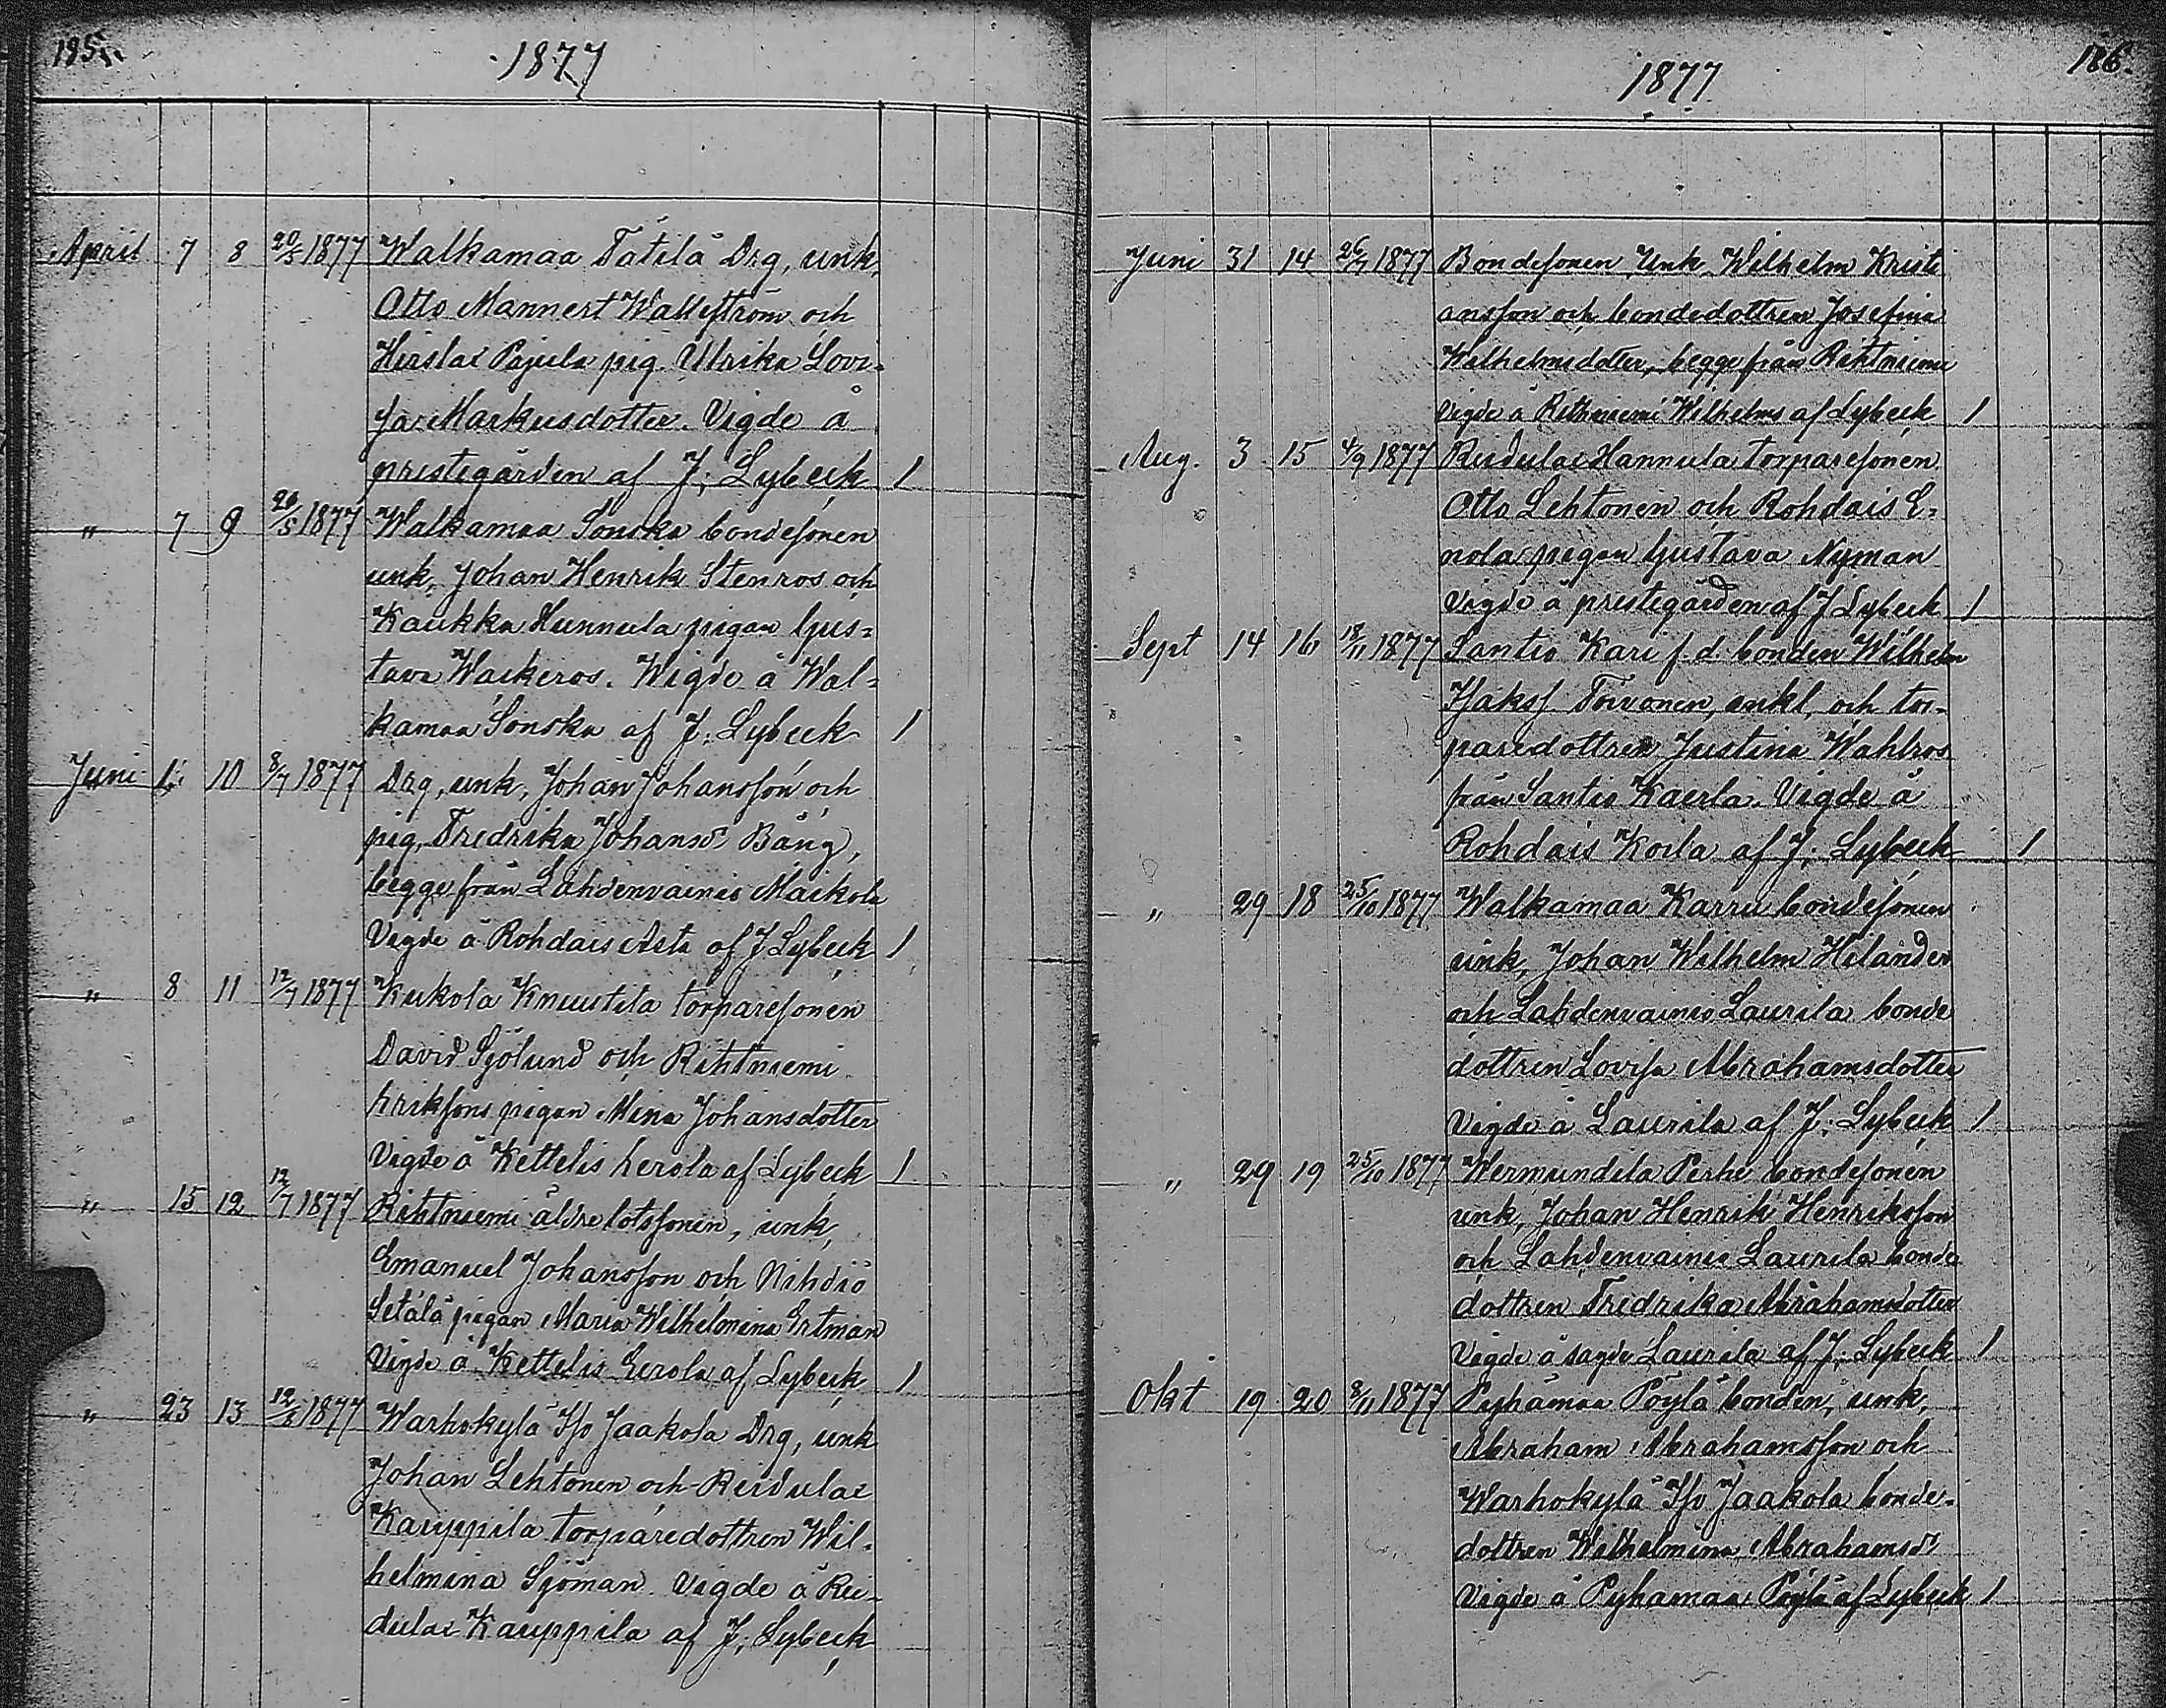 185.
1877
April 7 8 20/5 1877 Walkamaa Tätilä Drg, unk,
Otto Mannert Wallström och
Hirslax Pajula pig. Ulrika Lovi-
sa Markusdotter. Vigde å
prestegården af J. Lybeck 1
" 7 9 20/5 1877 Walkamaa Sonska bondesonen
unk, Johan Henrik Stenros och
Kaukka Hunnula pigan Gus=
tava Waskeros. Wigde å Wal=
kamaa Sonska af J. Lybeck 1
Juni 1 10 8/7 1877 Drg, unk, Johan Johansson och
pig, Fredrika Johansd. Bäng,
begge från Lahdenvainio Maikola
Vigde å Rohdais Asta af J Lybeck 1
" 8 11 12/7 1877 Kukola Knuutila torparesonen
David Sjölund och Rihtniemi
hriksons pigan Mina Johansdotter
Vigde å Kettelis herola af Lybeck 1
" 15 12 12/7 1877 Rihtniemi äldre lotssonen, unk,
Emanuel Johansson och Nihdiö
Setälä pigan Maria Wilhelmina Ertman
Vigde å Kettelis Eerola af Lybeck 1
" 23 13 12/8 1877 Warhokylä Iso Jaakola Drg, unk
Johan Lehtonen och Reidulai
Kauppila torparedottren Wil-
helmina Sjöman. Vigde å Rei-
dulai Kauppila af J. Lybeck
186.
1877
Juni 31 14 26/7 1877 Bondesonen Unk. Wilhelm Kristi
ansson och bondedottren Josefina
Wilhelmsdotter, begge från Rihtniemi
Vigde å Rithniemi Wilhelms af Lybeck 1
Aug. 3 15 4/9 1877 Reidulai Hannula torparesonen
Otto Lehtonen och Rohdais E=
nola pigan Gustava Nyman
Vigde å prestegården af J Lybeck 1
Sept 14 16 18/11 1877 Santio Kari f.d. bonden Wilhelm
Isakss Toivonen, enkl, och tor-
paredottren Justina Wahlros
från Santio Kaerla. Vigde å
Rohdais Koila af J. Lybeck 1
" 29 18 25/10 1877 Walkamaa Karru bondesonen
unk, Johan Wilhelm Hilander
och Lahdenvainio Laurila bonde
dottren Lovisa Abrahamsdotter
Vigde å Laurila af J. Lybeck 1
" 29 19 25/10 1877 Wermundila Perhe bondesonen
unk, Johan Henrik Henriksson
och Lahdenvainio Laurila bonde
dottren Fredrika Abrahamsdotter
Vigde å sagde Laurila af J. Lybeck 1
Okt 19 20 8/11 1877 Pyhämaa Pöylä bonden, unk,
Abraham Abrahamsson och
Warhokylä Iso Jaakola bonde-
dottren Wilhelmina Abrahamsd.
Vigde å Pyhamaa Pöylä af Lybeck 1